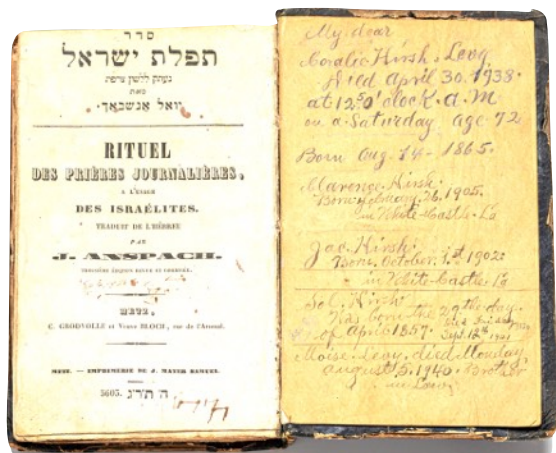 סדר
תפלת ישראל
נעתק ללשון צרפת
מאת
יואל אנשבאך.
RITUEL
DES PRIÈRES JOURNALIÈRES,
A L'USAGE
DES ISRAÉLITES.
TRADUIT DE L'HÉBREU
PAR
J. ANSPACH.
TROISIÈME ÉDITION REVUE ET CORRIGÉE.
METZ,
C. GRODVOLLE et Veuve BLOCH, rue de l'Arsenal.
METZ. — IMPRIMERIE DE J. MAYER SAMUEL.
5603. ה' תר"ג
My dear
Coralie Hirsh. Levy
Died April 30. 1938.
at 12 50' o'clock A. M
on a Saturday age 72
Born Aug. 14 - 1865.
Clarence Hirsh.
Born February. 26. 1905.
in White-Castle. La
Jac. Hirsh.
Born. October. 1st 1902.
in White Castle. La
So C. Hirsh
Was born the 29the day.
of April 1857.
Sept. 12th 1921
Moise. Levy. died Monday,
August 5. 1940. Brother
in Law.